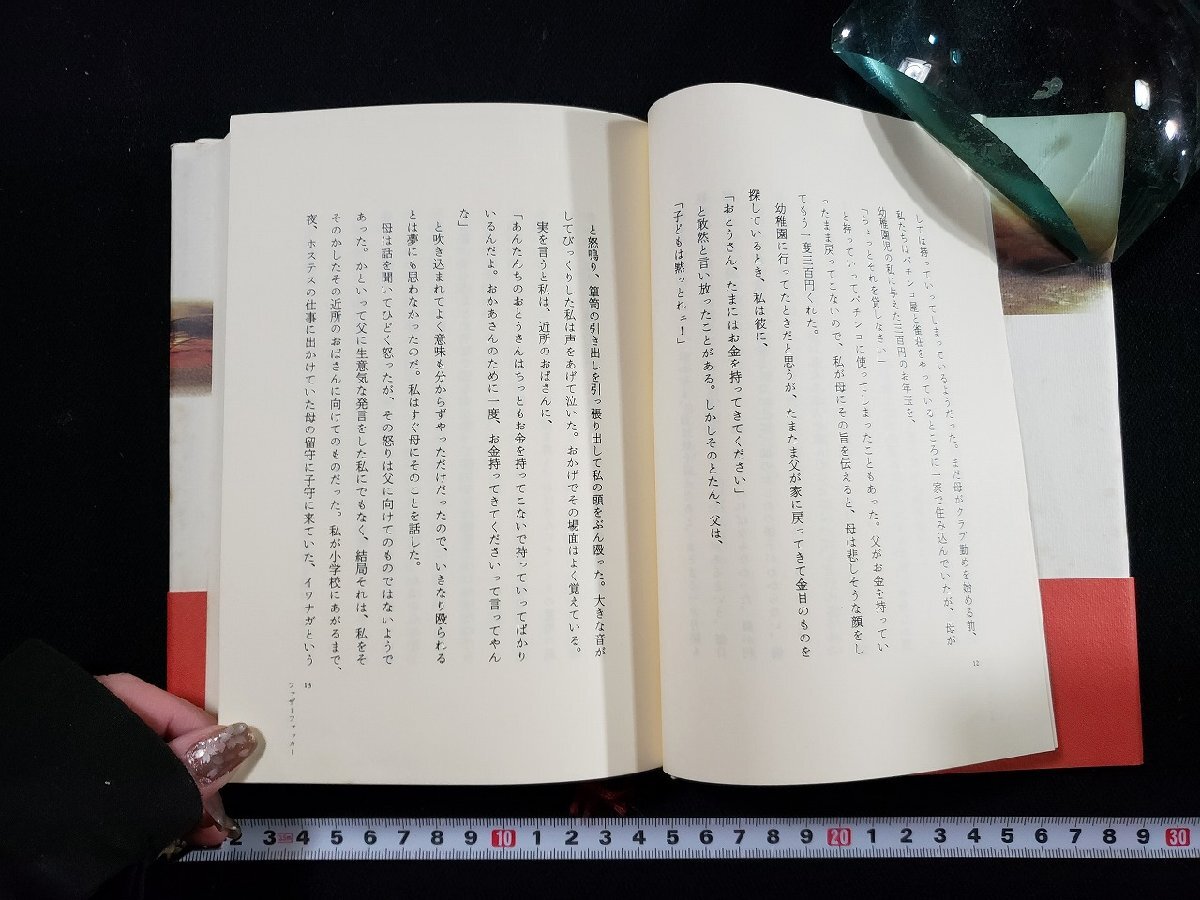 しては持っていってしまっているようだった。まだ母がクラブ勤めを始める前、
私たちはパチンコ屋と雀荘をやっているところに一家で住み込んでいたが、母が
幼稚園児の私に与えた三百円のお年玉を、
「ちょっとそれを貸しなさい」
と持っていってパチンコに使ってしまったこともあった。父がお金を持ってい
ったまま戻ってこないので、私が母にその旨を伝えると、母は悲しそうな顔をし
てもう一度三百円くれた。
幼稚園に行ってたときだと思うが、たまたま父が家に戻ってきて金目のものを
探しているとき、私は彼に、
「おとうさん、たまにはお金を持ってきてください」
と敢然と言い放ったことがある。しかしそのとたん、父は、
「子どもは黙っとれェ！」
12
と怒鳴り、箪笥の引き出しを引っ張り出して私の頭をぶん殴った。大きな音が
してびっくりした私は声をあげて泣いた。おかげでその場面はよく覚えている。
実を言うと私は、近所のおばさんに、
「あんたんちのおとうさんはちっともお金を持ってこないで持っていってばかり
いるんだよ。おかあさんのために一度、お金持ってきてくださいって言ってやん
な」
と吹き込まれてよく意味も分からずやっただけだったので、いきなり殴られる
とは夢にも思わなかったのだ。私はすぐ母にそのことを話した。
母は話を聞いてひどく怒ったが、その怒りは父に向けてのものではないようで
あった。かといって父に生意気な発言をした私にでもなく、結局それは、私をそ
そのかしたその近所のおばさんに向けてのものだった。私が小学校にあがるまで、
夜、ホステスの仕事に出かけていた母の留守に子守に来ていた、イワナガという
13
ファザーファッカー
2 3 4 5 6 7 8 9 10 1 2 3 4 5 6 7 8 9 20 1 2 3 4 5 6 7 8 9 30